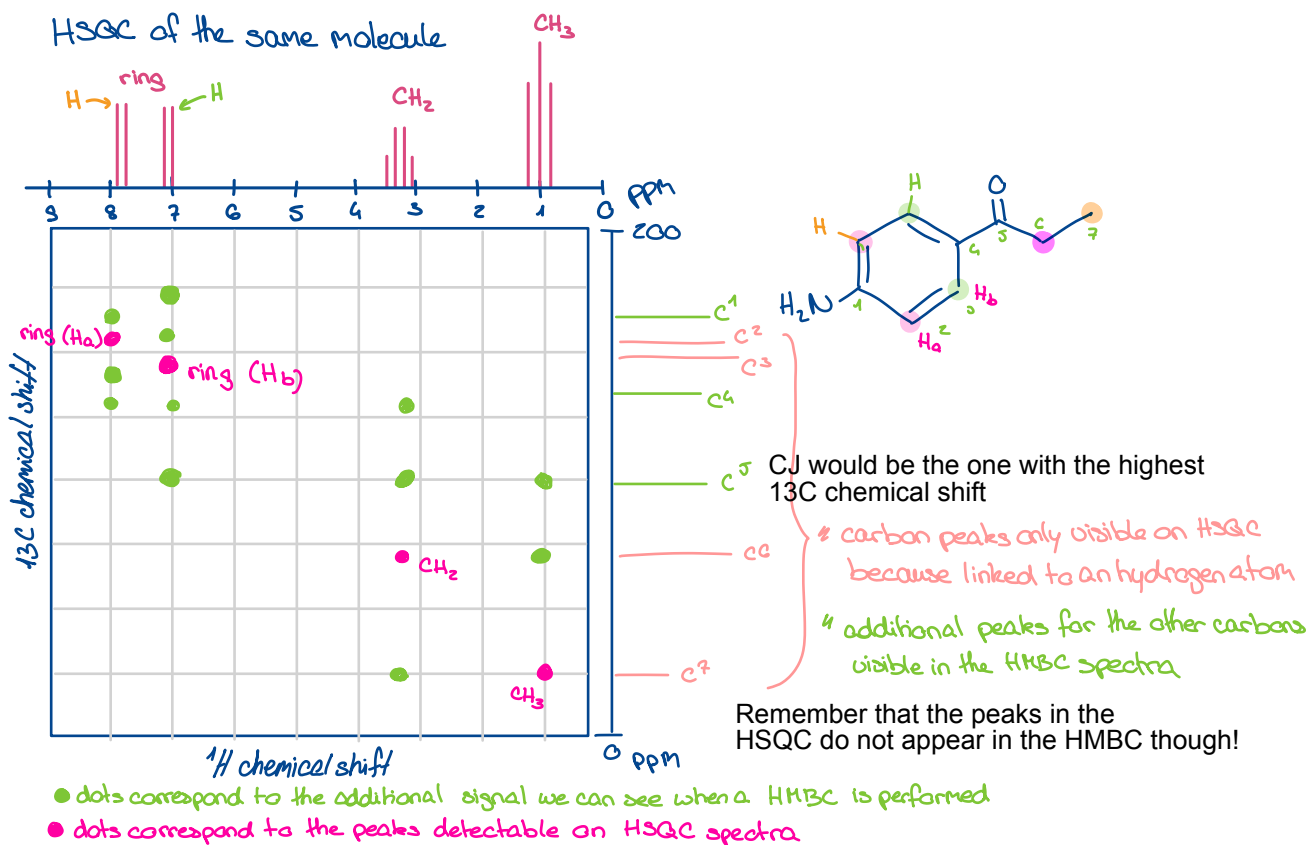 HSQC of the same molecule
CH3
ring
H
H
CH2
9 8 7 6 5 4 3 2 1 0 ppm
200
H
O
H
H2N
1
2
3
4
5
6
7
Ha
Hb
C1
C2
C3
C4
C5
C6
C7
ring (Ha)
ring (Hb)
CH2
CH3
13C chemical shift
CJ would be the one with the highest
13C chemical shift
" carbon peaks only visible on HSQC
because linked to an hydrogen atom
" additional peaks for the other carbons
visible in the HMBC spectra
Remember that the peaks in the
HSQC do not appear in the HMBC though!
1H chemical shift
0 ppm
dots correspond to the additional signal we can see when a HMBC is performed
dots correspond to the peaks detectable on HSQC spectra